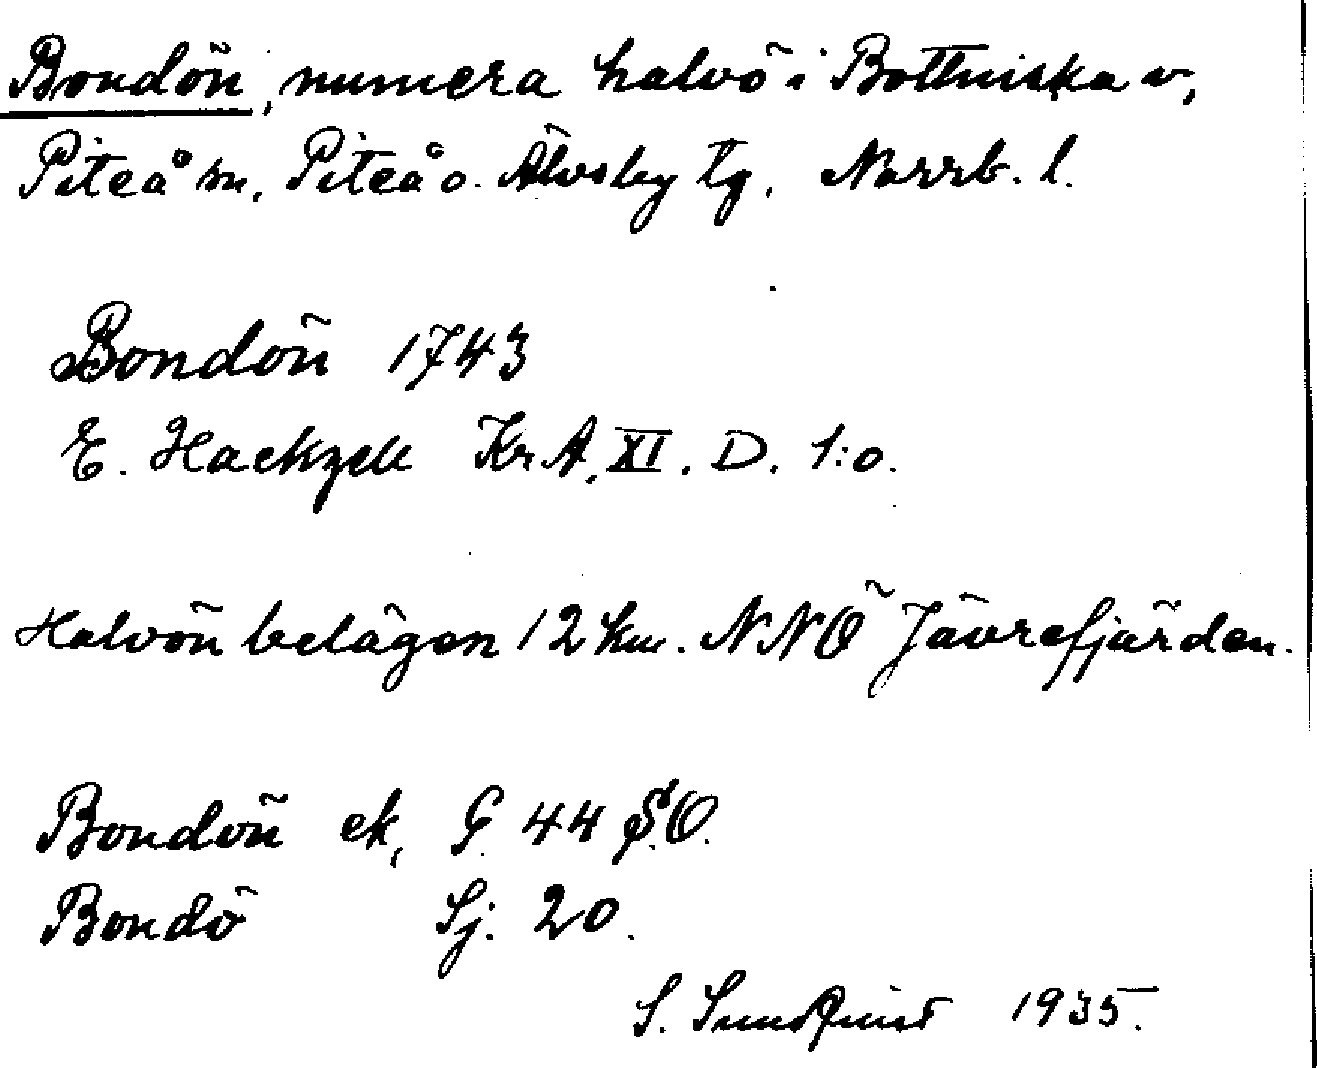 Bondön, numera halvö i Bottniska v,
Piteå sn, Piteå o. Älvsby tg, Norrb. l.
Bondön 1743
E. Hackzell KrA, XI. D. 1:o.
Halvön belägen 12 km. NNÖ Jävrefjärden.
Bondön ek, G. 44 S.O.
Bondö Sj. 20.
S. Sundquist 1935.